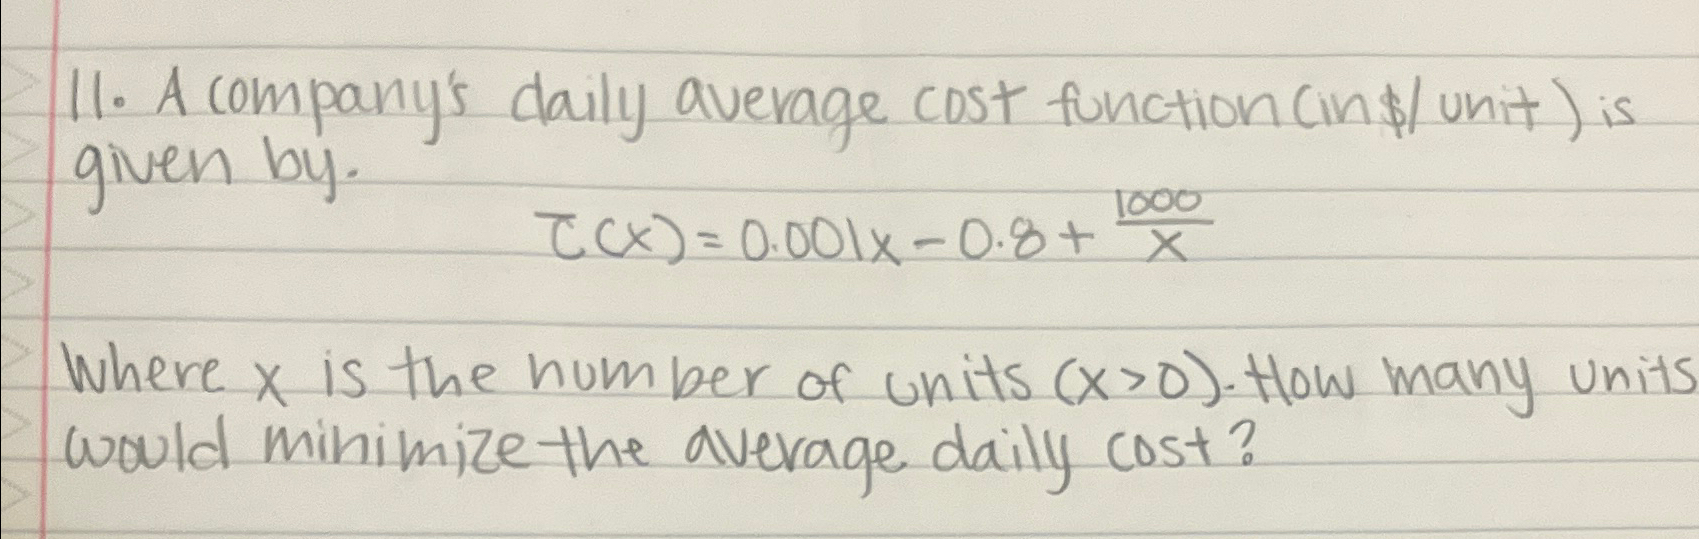 11. A company's daily average cost function (in $/unit) is
given by.
C̅(x) = 0.001x - 0.8 + 1000/x
Where x is the number of units (x>0). How many units
would minimize the average daily cost?